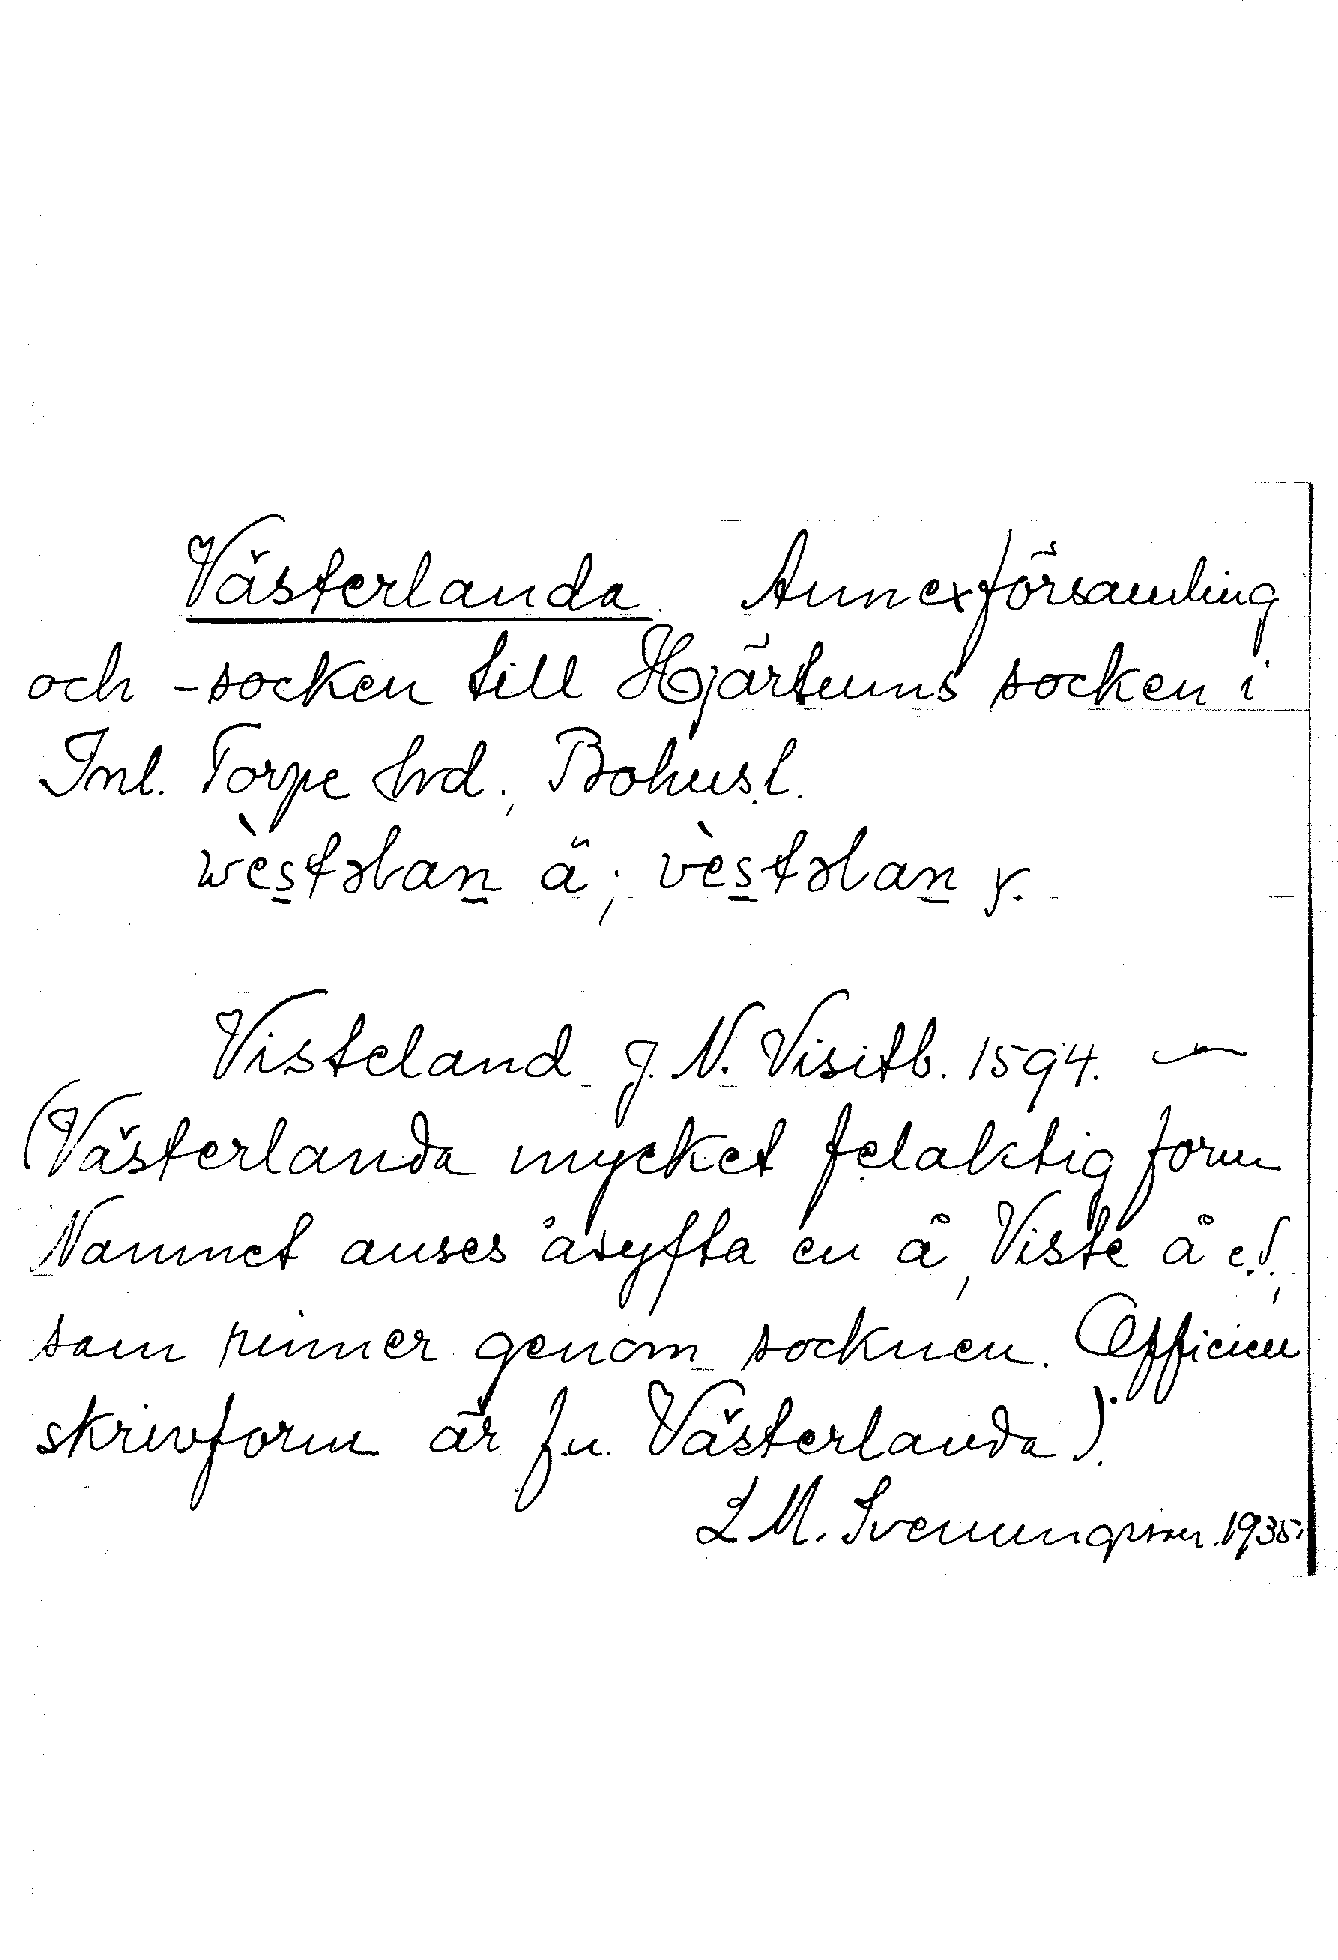 Västerlanda. Annexförsamling
och -socken till Hjärtums socken i
Inl. Torpe hrd., Bohusl.
wèstəlan ä; vèstəlan y.
Visteland J. N. Visitb. 1594. —
(Västerlanda mycket felaktig form
Namnet anses åsyfta en å, Viste å e.d.,
som rinner genom socknen. Officiell
skrivform är f.n. Västerlanda).
L M. Svenungsson 1935.